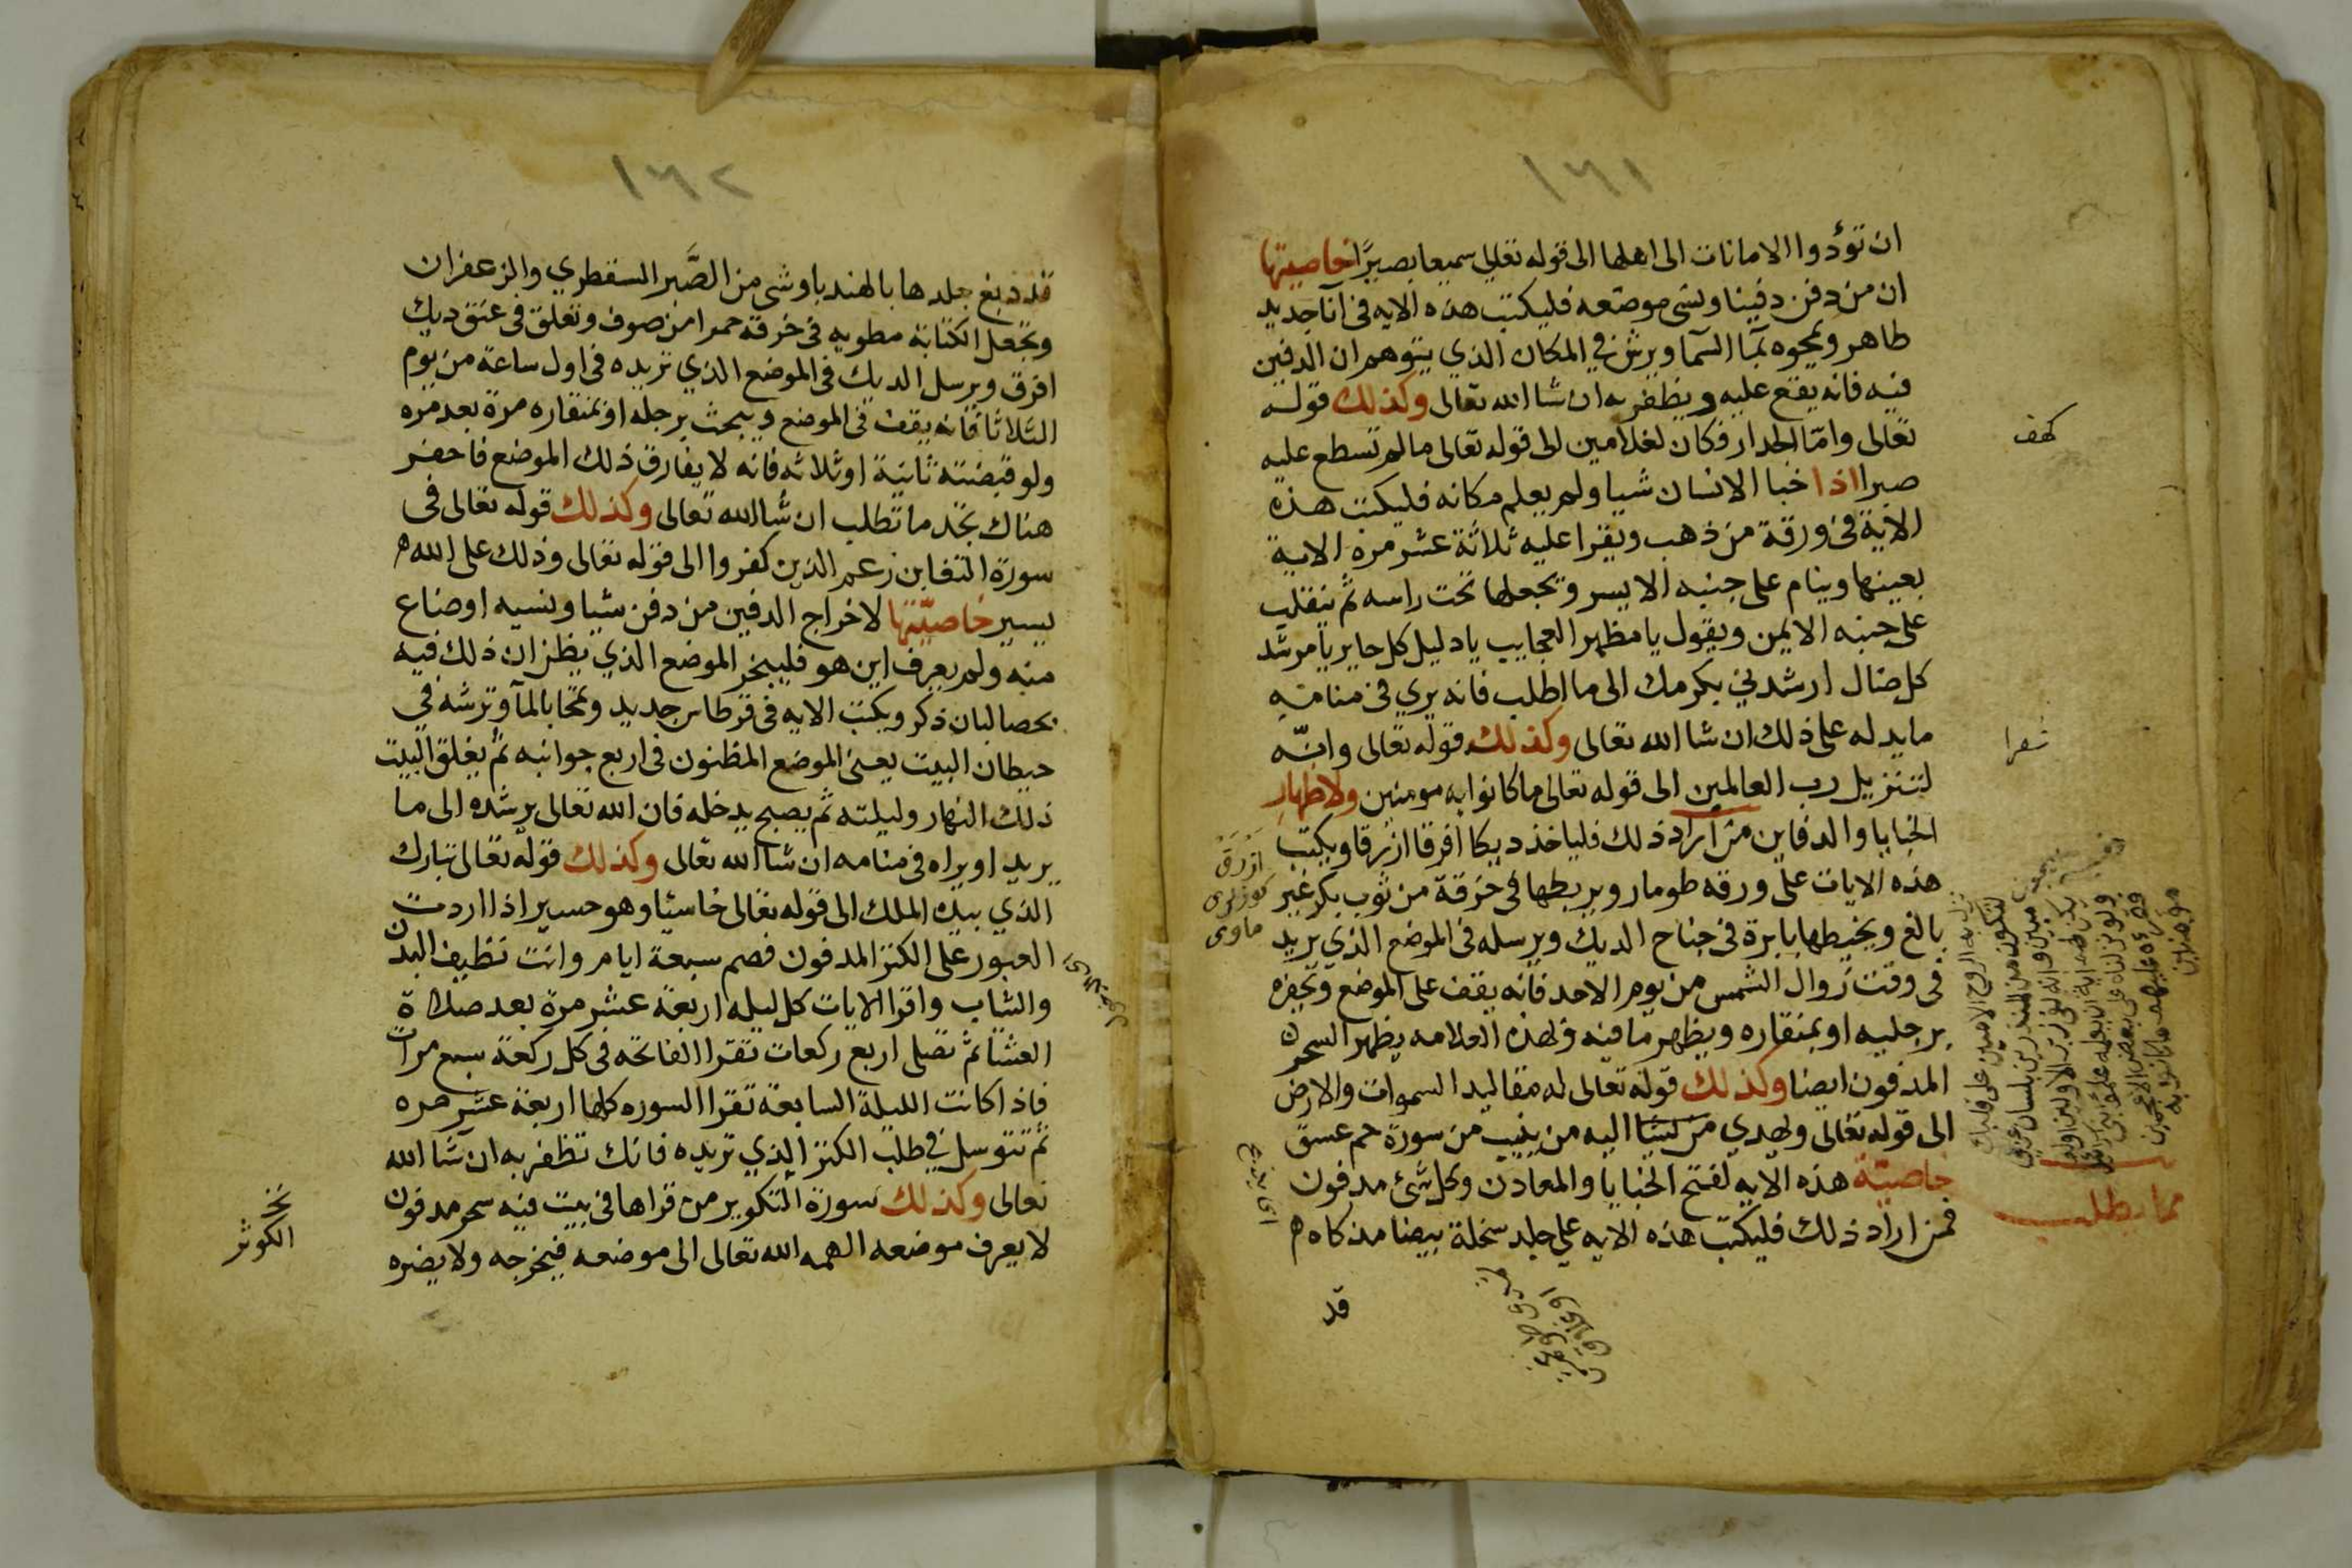 ١٦١
ان تؤدوا الامانات الى اهلها الى قوله تعالى سميعا بصيرًا خاصيتها
ان من دفن دفينا ونسى موضعه فليكتب هذه الايه فى آنا جديد
طاهر ويمحوه بمآ السما ويرش فى المكان الذي يتوهم ان الدفين
فيه فانه يقع عليه ويظفر به ان شا الله تعالى وكذلك قوله
تعالى وامّا الجدار فكان لغلامين الى قوله تعالى مالم تسطع عليه
صبرا اذا خبا الانسان شيا ولم يعلم مكانه فليكتب هذه
الاية فى ورقة من ذهب ويقرا عليه ثلاثة عشر مرة الاية
بعينها وينام على جنبه الايسر وتجعلها تحت راسه ثم ينقلب
على جنبه الايمن ويقول يا مظهر العجايب يا دليل كل حاير يا مرشد
كل ضال ارشدني بكرمك الى ما اطلب فانه يري فى منامه
ما يدله على ذلك ان شا الله تعالى وكذلك قوله تعالى وانّه
لتنزيل رب العالمين الى قوله تعالى ماكانوا به مومنين ولاظهار
الخبايا والدفاين من اراد ذلك فلياخذ ديكا افرقا ازرقا ويكتب
هذه الايات على ورقه طومار ويربطها فى خرقة من ثوب بكر غير
بالغ ويخيطها بابرة فى جناح الديك ويرسله فى الموضع الذي يريد
فى وقت زوال الشمس من يوم الاحد فانه يقف على الموضع ويحفره
برجليه او بمنقاره ويظهر ما فيه وبهذه العلامه يظهر السحر
المدفون ايضا وكذلك قوله تعالى له مقاليد السموات والارض
الى قوله تعالى ويهدي من يشا اليه من ينيب من سورة حم عسق
خاصيته هذه الايه لفتح الخبايا والمعادن وكل شئ مدفون
فمن اراد ذلك فليكتب هذه الايه على جلد سخلة بيضا مذكاه
قد
كهف
شعرا
ازرق
نزل به الروح الامين على قلبك
لتكون من المنذرين بلسان عربي
مبين وانه لفى زبر الاولين اولم
يكن لهم اية ان يعلمه علمؤا بنى اسرائيل
ولو نزلناه على بعض الاعجمين
فقرأه عليهم ما كانوا به
مؤمنين
مما يطلب
١٦٢
قد دبغ جلدها بالهندبا وشى من الصَّبر السقطري والزعفران
وتجعل الكتابة مطويه فى خرقة حمرا من صوف وتعلق فى عنق ديك
افرق ويرسل الديك فى الموضع الذي تريده فى اول ساعة من يوم
الثلاثا فانه يقف فى الموضع ويبحث برجله او بمنقاره مرة بعد مره
ولو قبضته ثانية او ثلاثه فانه لا يفارق ذلك الموضع فاحفر
هناك تجد ما تطلب ان شا الله تعالى وكذلك قوله تعالى فى
سورة التغابن زعم الذين كفروا الى قوله تعالى وذلك على الله
يسير خاصيّتها لاخراج الدفين من دفن شيا ونسيه او ضاع
منه ولم يعرف اين هو فليبخر الموضع الذي يظن ان ذلك فيه
بحصالبان ذكر ويكتب الايه فى قرطاس جديد وتمحا بالمآ وترشه في
حيطان البيت يعنى الموضع المظنون فى اربع جوانبه ثم يغلق البيت
ذلك النهار وليلته ثم يصبح يدخله فان الله تعالى يرشده الى ما
يريد او يراه فى منامه ان شا الله تعالى وكذلك قوله تعالى تبارك
الذي بيده الملك الى قوله تعالى خاسئا وهو حسير اذا اردت
العبور على الكنز المدفون فصم سبعة ايام وانت نظيف البدن
والثياب واقرا الايات كل ليله اربعة عشر مرة بعد صلاة
العشا ثم تصلى اربع ركعات تقرا الفاتحه فى كل ركعة سبع مرات
فاذا كانت الليلة السابعة تقرا السوره كلها اربعة عشر مره
ثم تتوسل في طلب الكنز الذي تريده فانك تظفر به ان شآ الله
تعالى وكذلك سورة التكوير من قراها فى بيت فيه سحر مدفون
لا يعرف موضعه الهمه الله تعالى الى موضعه فيخرجه ولا يضره
نخ
الكوثر